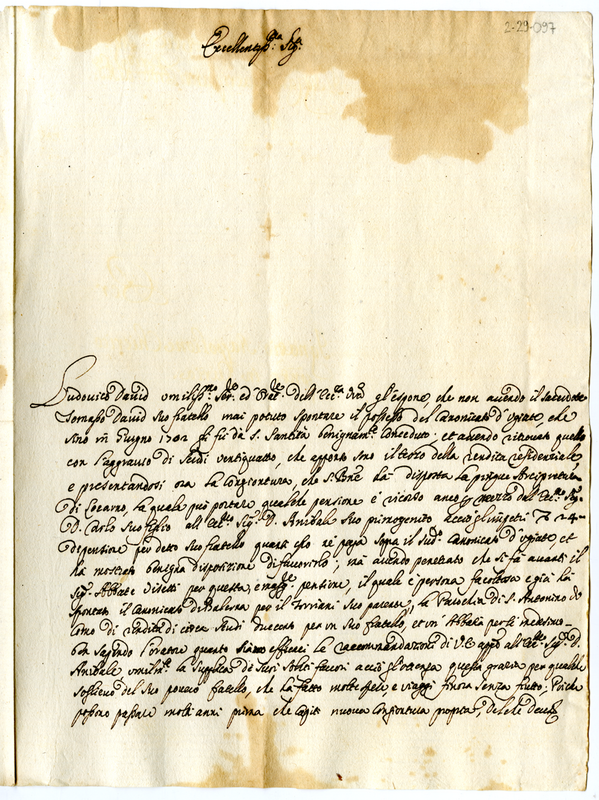 2-29-097
Eccellentis.ma Sig.ra
Ludovico David umiliss.mo Ser.re ed Orat.re dell'Ecc.za V.ra gl'espone, che non avendo il Sacerdote
Tomaso David suo fratello mai potuto spontare il possesso del Canonicato d'Ugiate, che
sino in Giugno 1702 gli fù da S. Santità benignam.te conceduto; et avendo ritrovato quello
con l'aggravio di Scudi ventiquattro, che apporto sino il terzo della rendita residenziale,
e presentandosi ora la congiontura, che S. B.ne ha disposta la pingue Arcipretura
di Locarno, la quale può portare qualche pensione è ricorso anco merzo del Sig.
D. Carlo suo figlio all' Sig. D. Anibale suo primogenito acciò gl'impetri 24
di pensione per detto suo fratello quanti che ne paga sopra il sud. Canonicato d'Ugiate, et
ha mostrato benigna disposizione di favorirlo; mà avendo penetrato che si fà avanti il
Sig. Abbate per questa, e magg.re pensione, il quale è persona facoltosa e già hà
spontato il Canonicato di Balerna per il Torriani suo parente, la Parochia di S. Antonino di
Como di rendita di circa Scudi duecento per un suo fratello, et un' Abbatia per se medesimo
Sapendo l'oratore quanto siano efficaci le raccomandazioni di V.E. appò all' Sig. D.
Anibale umilm.te la supplica de suoi soliti favori acciò gl'ottenga questa grazia per qualche
sollievo del suo povero fratello, che hà fatto molte spese, e viaggi finora senza frutto: Poiche
possono passare molti anni prima che capiti nuova congiontura propria, Del che